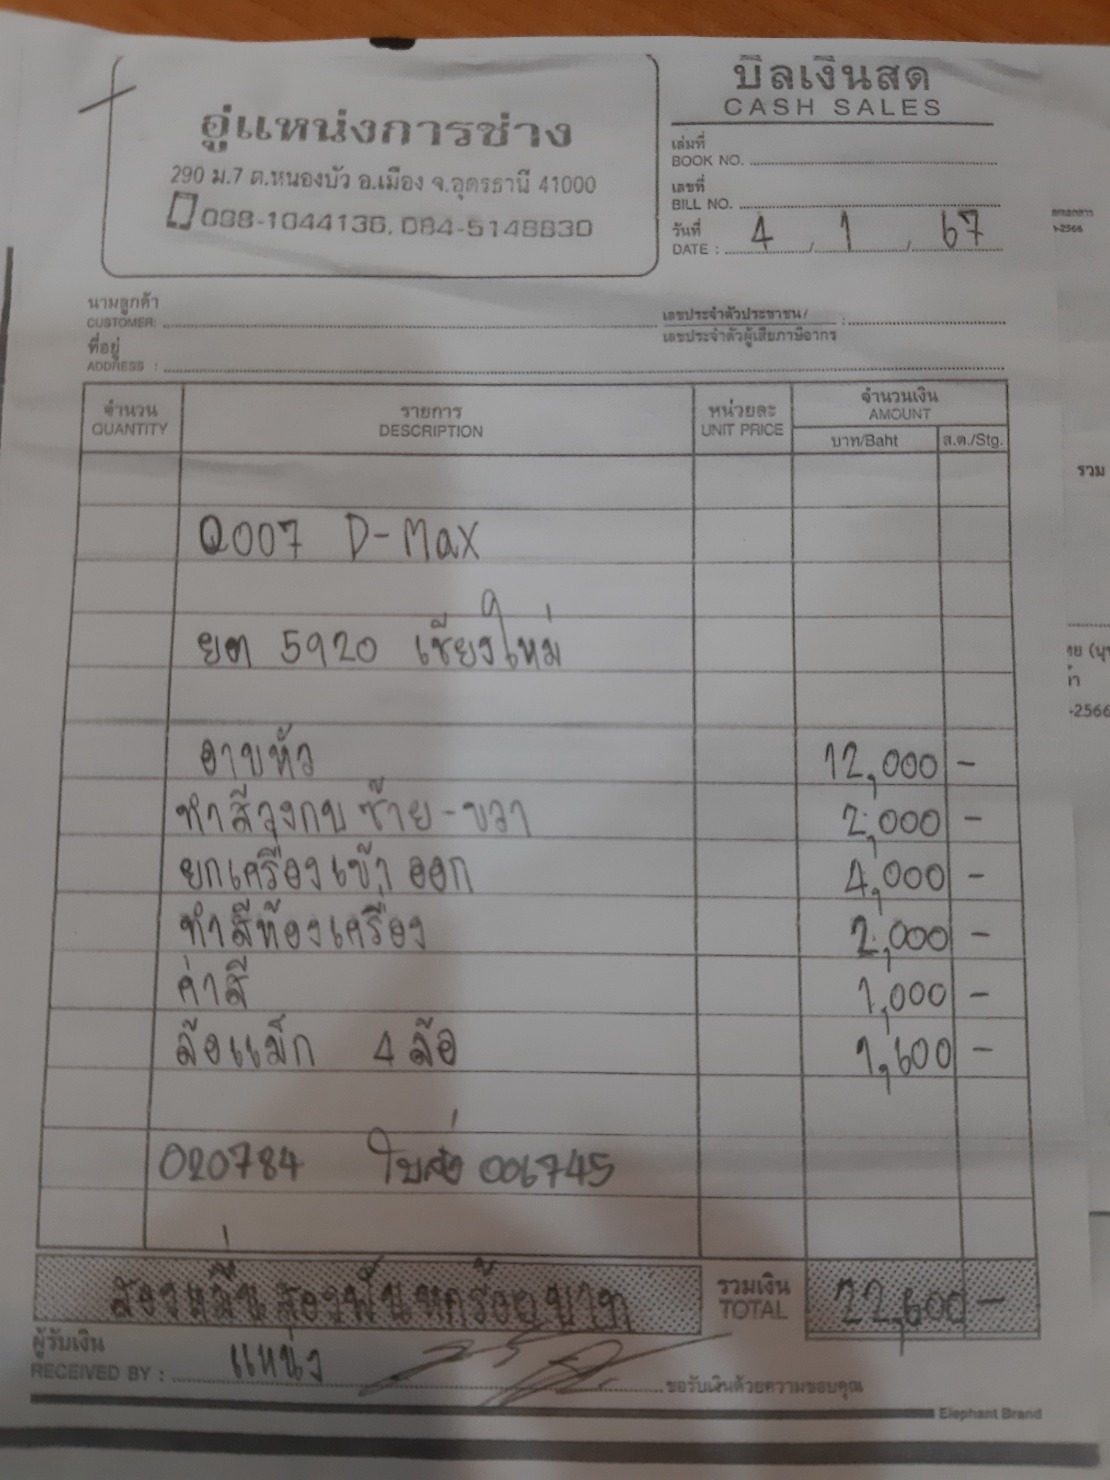 อู่แหน่งการช่าง
290 ม.7 ต.หนองบัว อ.เมือง จ.อุดรธานี 41000
088-1044136, 084-5148830
บิลเงินสด
CASH SALES
เล่มที่
BOOK NO.
เลขที่
BILL NO.
วันที่
DATE : 4 / 1 / 67
นามลูกค้า
CUSTOMER:
เลขประจำตัวประชาชน/
เลขประจำตัวผู้เสียภาษีอากร :
ที่อยู่
ADDRESS :
จำนวน รายการ หน่วยละ จำนวนเงิน
QUANTITY DESCRIPTION UNIT PRICE AMOUNT
บาท/Baht ส.ต./Stg.
Q007 D-Max
ยต 5920 เชียงใหม่
อาบหัว 12,000 -
ทำสีวงกบ ซ้าย-ขวา 2,000 -
ยกเครื่องเข้า ออก 4,000 -
ทำสีห้องเครื่อง 2,000 -
ค่าสี 1,000 -
ล้อแม็ก 4 ล้อ 1,600 -
020784 ใบส่ง 006745
สองหมื่นสองพันหกร้อยบาท รวมเงิน TOTAL 22,600 -
ผู้รับเงิน
RECEIVED BY : แหน่ง
ขอรับเงินด้วยความขอบคุณ
Elephant Brand
รวม
-2566